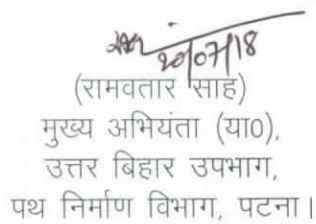 20/07/18
(रामवतार साह)
मुख्य अभियंता (या0),
उत्तर बिहार उपभाग,
पथ निर्माण विभाग, पटना।